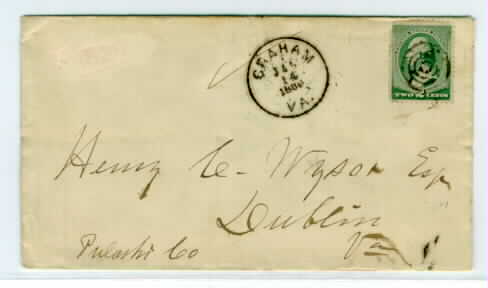 GRAHAM
14
VA.
TWO 2 CENTS
Henry C - Wysor Esq
Dublin
Pulaski Co Va